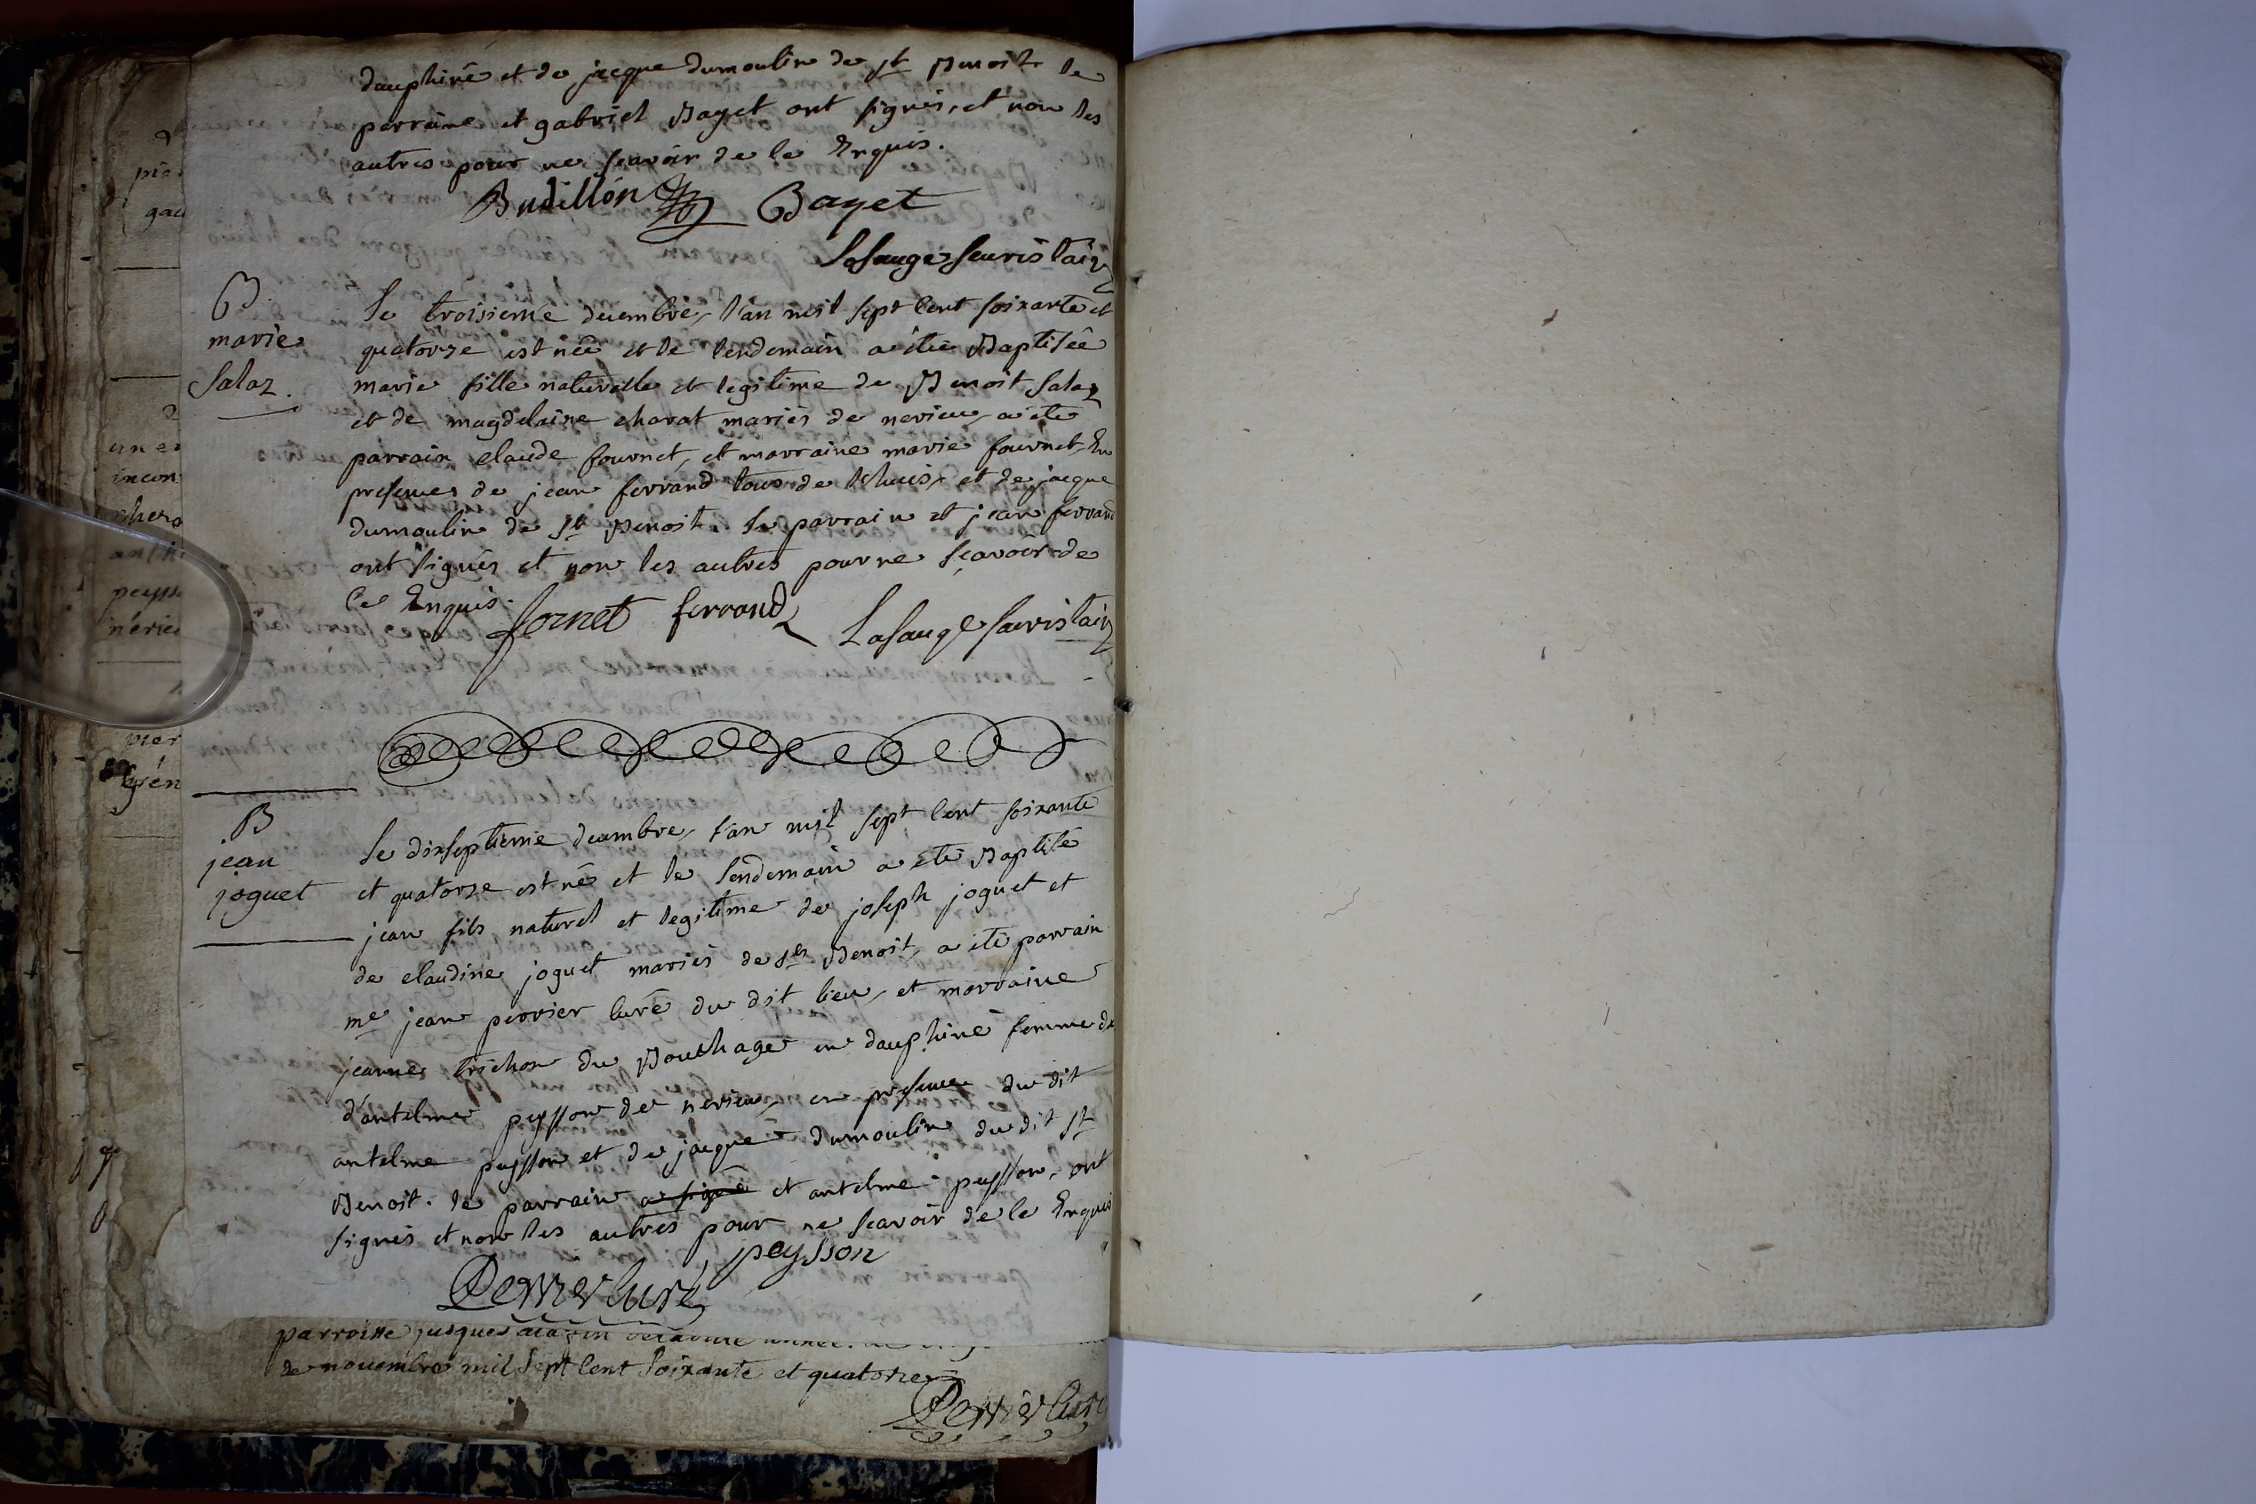 dauphiné et de jacque dumoulin de st Benoit le
parraine et gabriel Baget ont signés, et non les
autres pour ne scavoir de le Enquis.
Budillon Baget
Lasauge sacristain
B.
marie
Salaz.
Le troisieme decembre, l'an mil sept cent soixante et
quatorze est née et le lendemain a été Baptisée
marie fille naturelle et legitime de Benoit Salaz
et de magdelaine charat mariés de nerieu, a été
parrain claude fournet, et marraine marie fournet, En
presence de jean ferrand tous de lhuis, et de jacque
dumoulin de st Benoit. le parrain et jean ferrand
ont signés et non les autres pour ne sçavoir de
le Enquis.
fornet ferrand Lasauge sacristain
B
jean
joguet
Le dixseptieme decembre, l'an mil sept cent soixante
et quatorze est né et le lendemain a été Baptisé
jean fils naturel et legitime de joseph joguet et
de claudine joguet mariés de st Benoit, a été parrain
me jean perrier curé du dit lieu, et marraine
jeanne trichon du Bouchage en dauphiné femme de
d'antelme peysson de nerieu, en presence du dit
antelme peysson et de jacque dumoulin du dit st
Benoit. le parrain a signé et antelme peysson, ont
signés et non les autres pour ne scavoir de le Enquis
peysson
Perrier Curé
parroisse jusques a la fin
de novembre mil sept cent soixante et quatorze
Perrier Curé